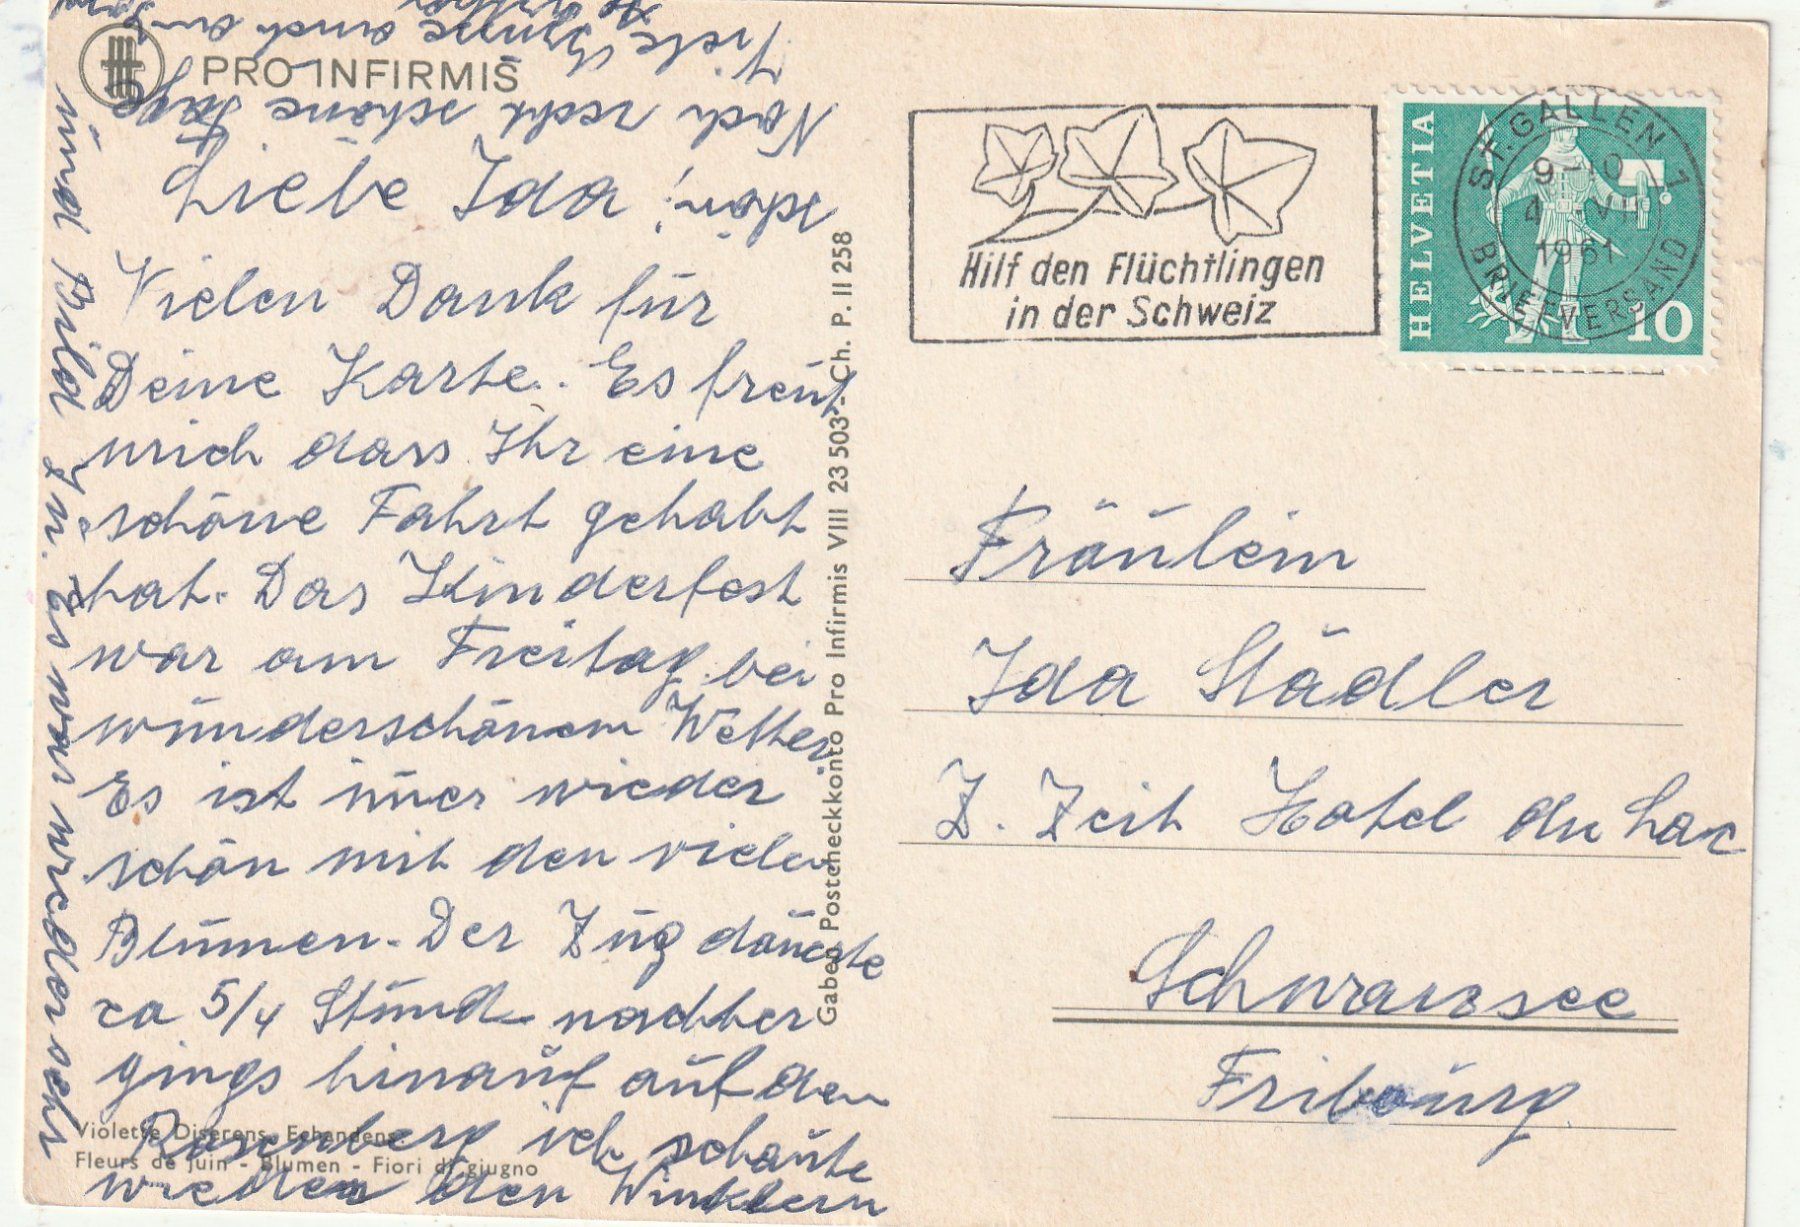 PRO INFIRMIS
Liebe Ida!
Vielen Dank für
Deine Karte. Es freut
mich dass Ihr eine
schöne Fahrt gehabt
hat. Das Kinderfest
war am Freitag bei
wünderschönem Wetter.
Es ist imer wieder
schön mit den vielen
Blümen. Der Züg däuerte
ca 5/4 Stünd nachher
gings hinaüf aüf den
Rosenberg ich schaüte
wieder den Winklern
ünd Bild zü. Es war wieder sehr
schön!
Noch recht schöne Tage
Viele Grüsse auch an
Violette Diserens, Echandens.
Fleurs de juin - Blumen - Fiori di giugno
Gaben Postcheckkonto Pro Infirmis VIII 23 503 - Ch. P. II 258
Hilf den Flüchtlingen
in der Schweiz
HELVETIA
10
ST. GALLEN 1
9-10
4. VII
1961
BRIEFVERSAND
Fräülein
Ida Städler
Z. Zeit Hotel du Lac
Schwarzsee
Friboürg